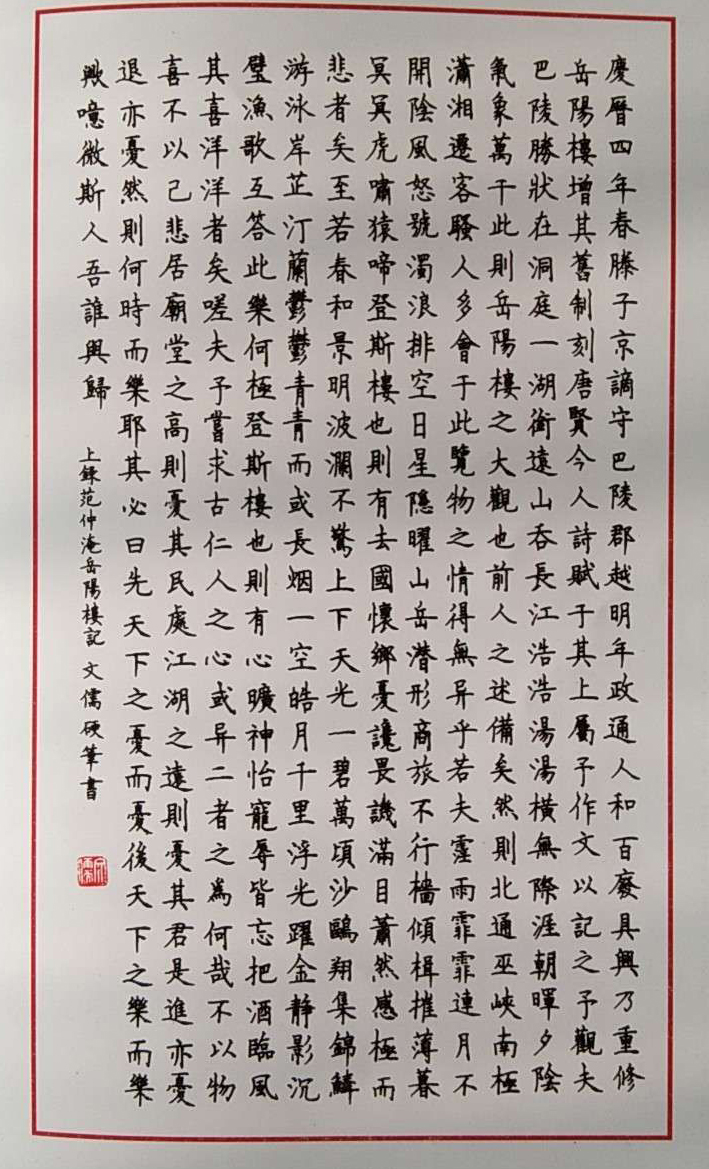 慶曆四年春滕子京謫守巴陵郡越明年政通人和百廢具興乃重修
岳陽樓增其舊制刻唐賢今人詩賦于其上屬予作文以記之予觀夫
巴陵勝狀在洞庭一湖銜遠山吞長江浩浩湯湯橫無際涯朝暉夕陰
氣象萬千此則岳陽樓之大觀也前人之述備矣然則北通巫峽南極
瀟湘遷客騷人多會于此覽物之情得無异乎若夫霪雨霏霏連月不
開陰風怒號濁浪排空日星隱曜山岳潛形商旅不行檣傾楫摧薄暮
冥冥虎嘯猿啼登斯樓也則有去國懷鄉憂讒畏譏滿目蕭然感極而
悲者矣至若春和景明波瀾不驚上下天光一碧萬頃沙鷗翔集錦鱗
游泳岸芷汀蘭鬱鬱青青而或長烟一空皓月千里浮光躍金靜影沉
璧漁歌互答此樂何極登斯樓也則有心曠神怡寵辱皆忘把酒臨風
其喜洋洋者矣嗟夫予嘗求古仁人之心或异二者之為何哉不以物
喜不以己悲居廟堂之高則憂其民處江湖之遠則憂其君是進亦憂
退亦憂然則何時而樂耶其必曰先天下之憂而憂後天下之樂而樂
歟噫微斯人吾誰與歸
上錄范仲淹岳陽樓記 文儒硬筆書
文儒